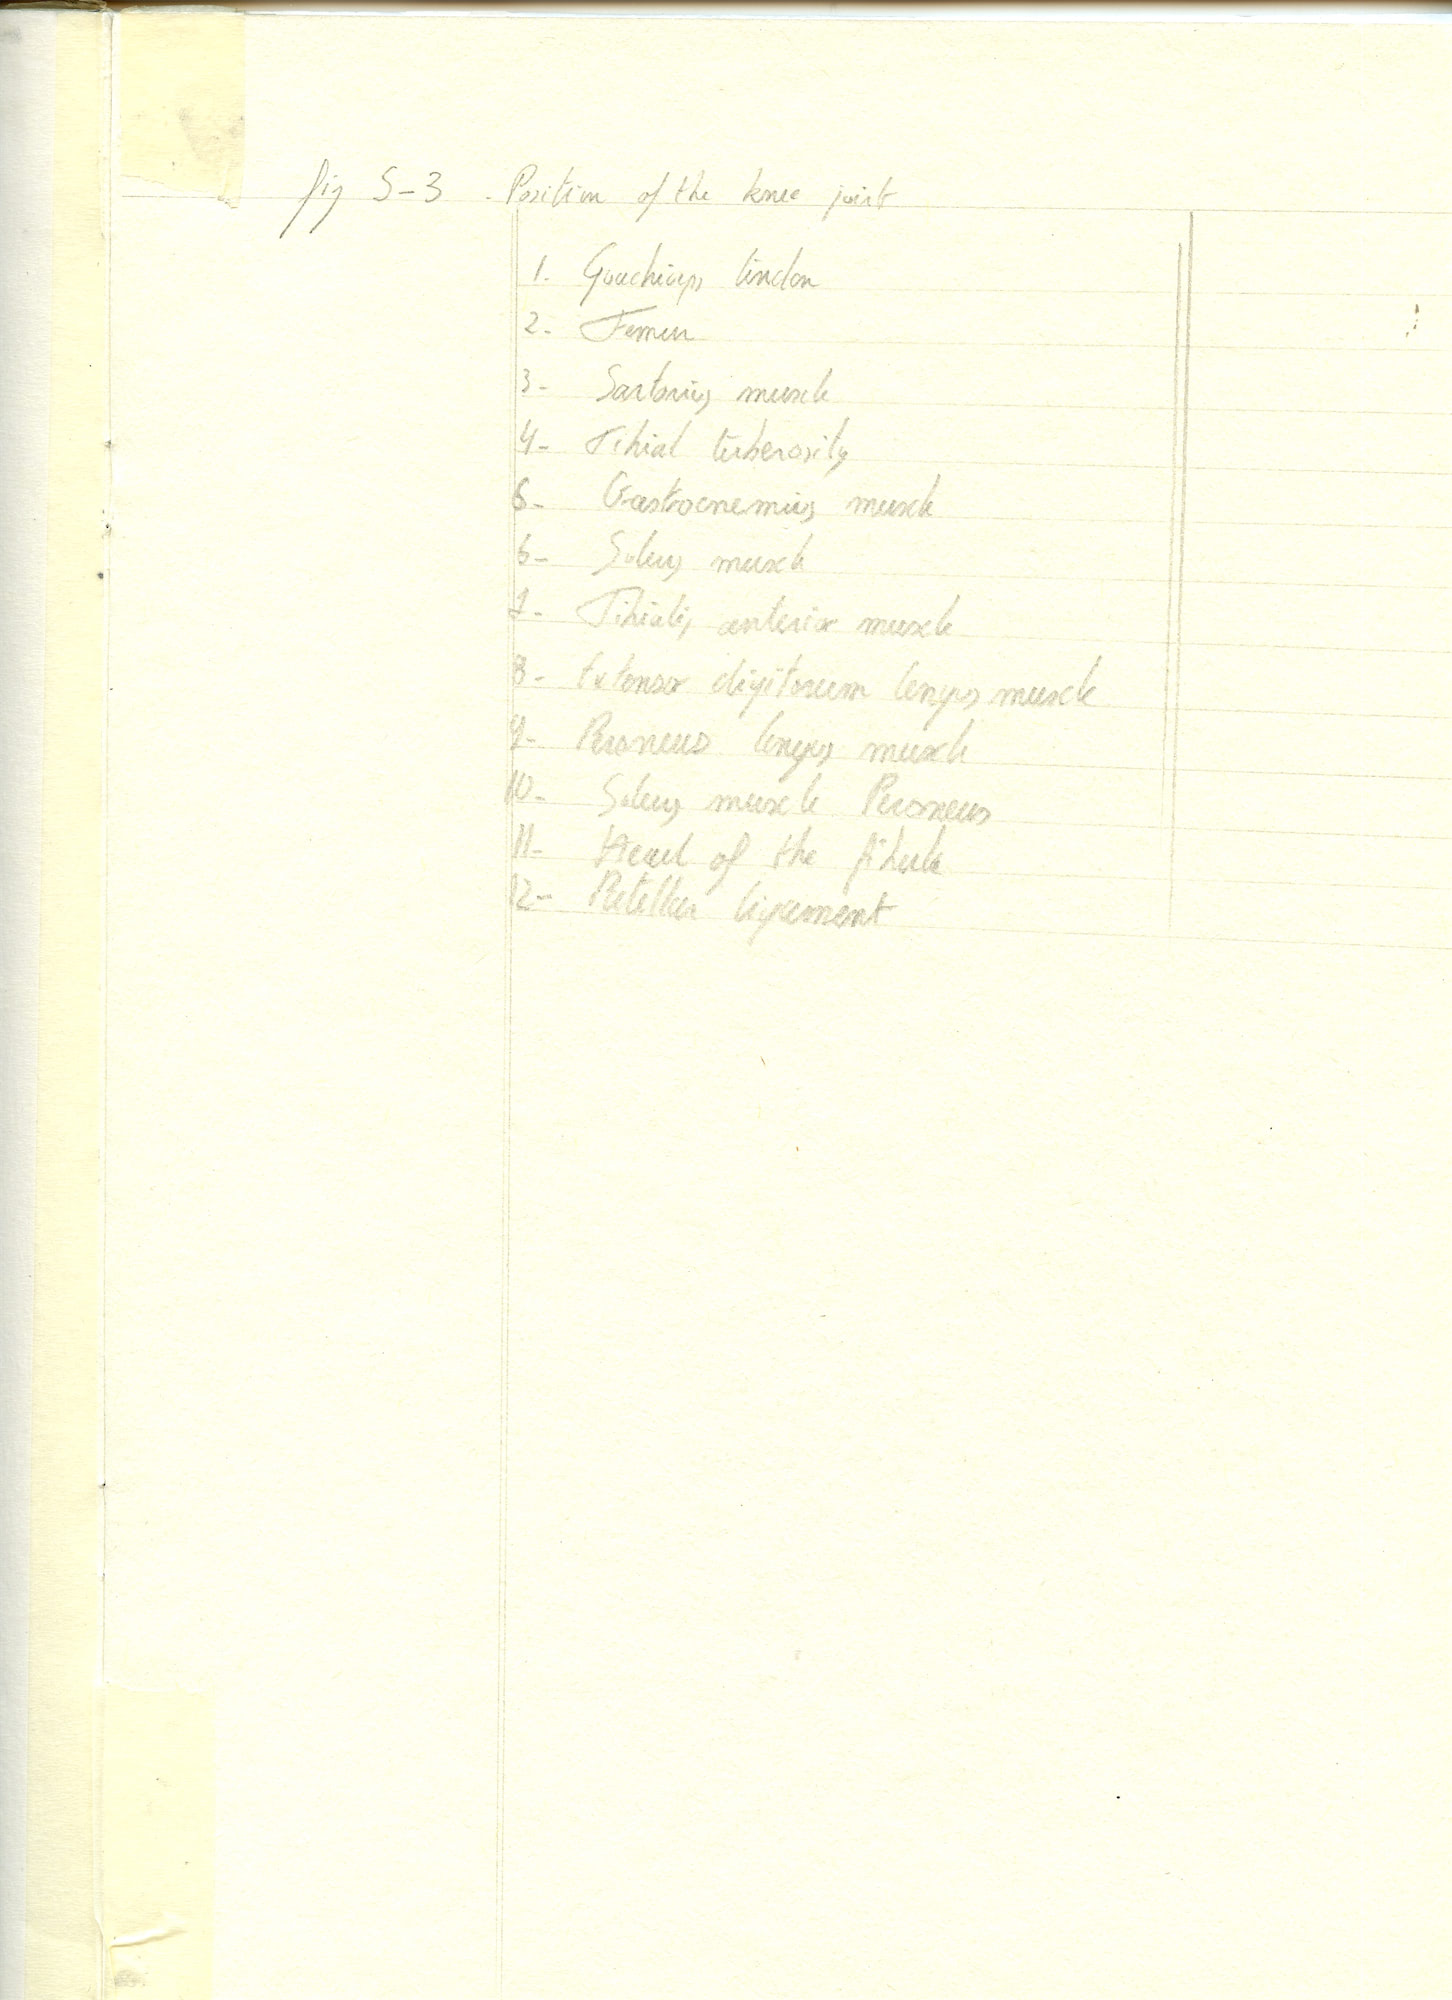 fig 5-3 - Position of the knee joint
1- Quadriceps tendon
2- Femur
3- Sartorius muscle
4- Tibial tuberosity
5- Gastrocnemius muscle
6- Soleus muscle
7- Tibialis anterior muscle
8- Extensor digitorum longus muscle
9- Peroneus longus muscle
10- Soleus muscle Peroneus
11- Head of the fibula
12- Patellar ligament